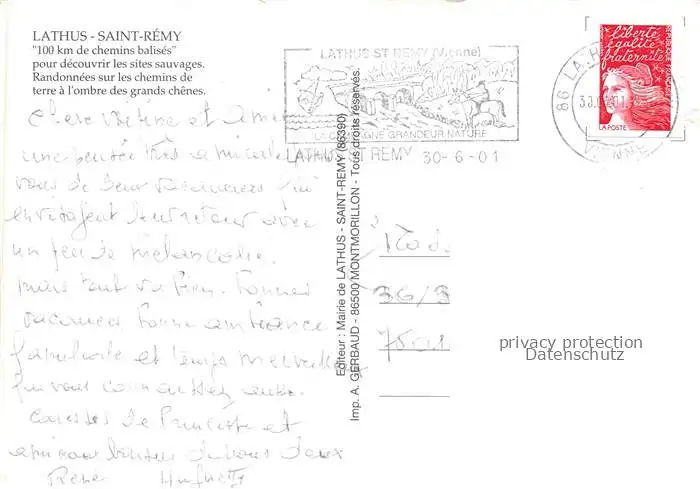 LATHUS - SAINT-RÉMY
"100 km de chemins balisés"
pour découvrir les sites sauvages.
Randonnées sur les chemins de
terre à l'ombre des grands chênes.
LATHUS ST REMY (Vienne)
LA CAMPAGNE GRANDEUR NATURE
LATHUS ST REMY 30-6-01
86 LA
VIENNE
liberté
égalité
fraternité
LA POSTE
Chère voisine et amie
une pensée très amicale
vous de deux vacanciers qui
envisagent leur retour avec
un peu de mélancolie.
mais tout va bien. Bonnes
vacances bonne ambiance
fabuleuse et temps merveilleux
que vous connaissez aussi.
Caresses de Princesse et
amicaux bonjour de nous deux
René
Editeur : Mairie de LATHUS - SAINT-REMY (86390)
Imp. A. GERBAUD - 86500 MONTMORILLON - Tous droits réservés.
36/3
privacy protection
Datenschutz